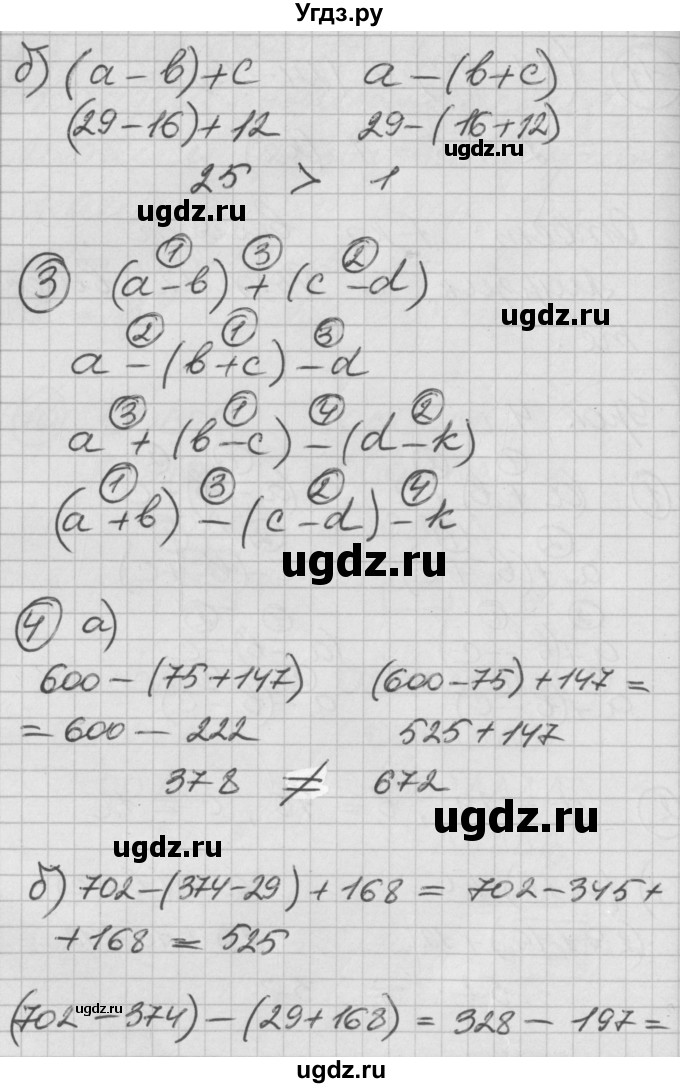 Угдз.ру
б) (a - b) + c   a - (b + c)
(29 - 16) + 12   29 - (16 + 12)
ugdz.ru
25 > 1
ugdz.ru
① ③ ②
③ (a - b) + (c - d)
ugdz.ru
② ① ③
a - (b + c) - d
③ ① ④ ②
a + (b - c) - (d - k)
① ③ ② ④
(a + b) - (c - d) - k
ugdz.ru
④ а)
600 - (75 + 147)   (600 - 75) + 147 =
= 600 - 222   525 + 147
378 ≠ 672
ugdz.ru
ugdz.ru
б) 702 - (374 - 29) + 168 = 702 - 345 +
+ 168 = 525
ugdz.ru
(702 - 374) - (29 + 168) = 328 - 197 =
ugdz.ru